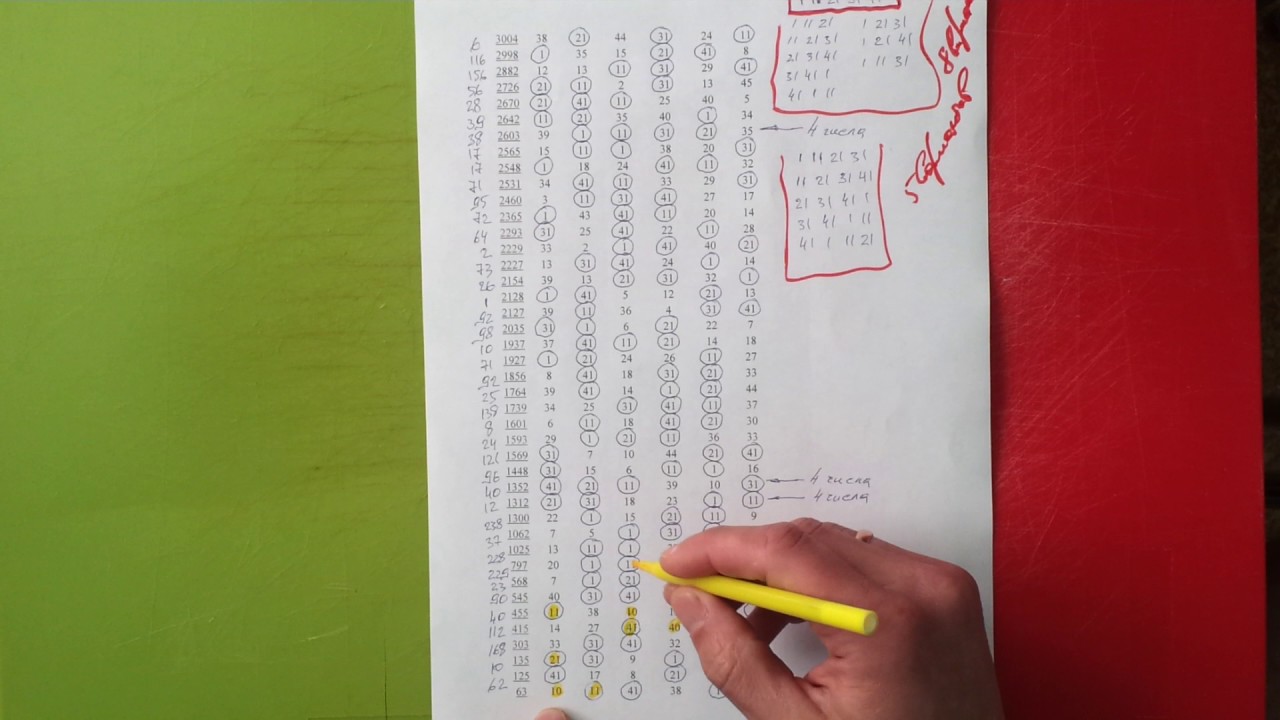 6 3004 38 21 44 31 24 11
116 2998 1 35 15 21 41 8
156 2882 12 13 11 31 29 41
56 2726 21 11 2 31 13 45
28 2670 21 41 11 25 40 5
39 2642 11 21 35 40 1 34
38 2603 39 1 11 31 21 35 4 числа
17 2565 15 11 1 38 20 31
17 2548 1 18 24 41 11 32
71 2531 34 41 11 33 29 31
95 2460 3 11 31 41 27 17
72 2365 1 43 41 11 20 14
64 2293 31 25 41 22 11 28
2 2229 33 2 1 41 40 21
73 2227 13 31 41 24 1 14
26 2154 39 13 21 31 32 1
1 2128 1 41 5 12 21 13
92 2127 39 11 36 4 31 41
98 2035 31 1 6 21 22 7
10 1937 37 41 11 21 14 18
71 1927 1 21 24 26 11 27
92 1856 8 41 18 31 21 33
25 1764 39 41 14 1 21 44
138 1739 34 25 31 41 11 37
8 1601 6 11 18 41 21 30
24 1593 29 1 21 11 36 33
121 1569 31 7 10 44 21 41
96 1448 31 15 6 11 1 16
40 1352 41 21 11 39 10 31 4 числа
12 1312 21 31 18 23 1 11 4 числа
238 1300 22 1 15 21 11 9
37 1062 7 5 1 31
228 1025 13 11 1
229 797 20 1
23 568 7 1 21
90 545 40 31 41
40 455 11 38 10
112 415 14 27 41 40
168 303 33 31 41 32
10 135 21 31 9 1
62 125 41 17 8 21
63 10 11 41 38
1 11 21 1 21 31
11 21 31 1 21 41
21 31 41 1 11 31
31 41 1
41 1 11
1 11 21 31
11 21 31 41
21 31 41 1
31 41 1 11
41 1 11 21